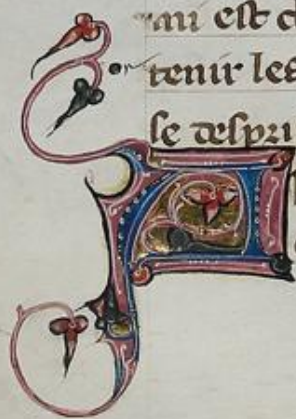 est c
tenir les
se despri
A